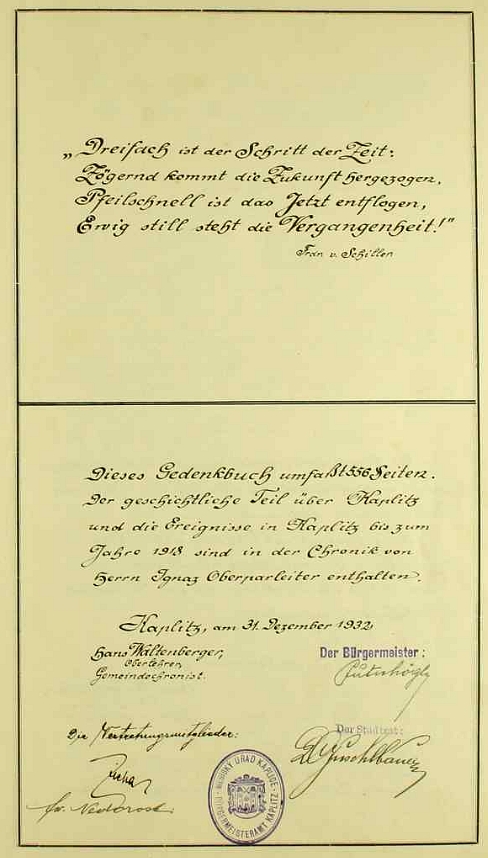 „Dreifach ist der Schritt der Zeit:
Zögernd kommt die Zukunft hergezogen,
Pfeilschnell ist das Jetzt entflogen,
Ewig still steht die Vergangenheit!"
v. Schiller
Dieses Gedenkbuch umfaßt 556 Seiten.
Der geschichtliche Teil über Kaplitz
und die Ereignisse in Kaplitz bis zum
Jahre 1918 sind in der Chronik von
Herrn Ignaz Oberparleiter enthalten.
Kaplitz, am 31. Dezember 1932
Hans Waltenberger,
Oberlehrer,
Gemeindechronist.
Der Bürgermeister:
Der Stadtrat:
Die Vertretungsmitglieder:
BÜRGERMEISTERAMT KAPLITZ